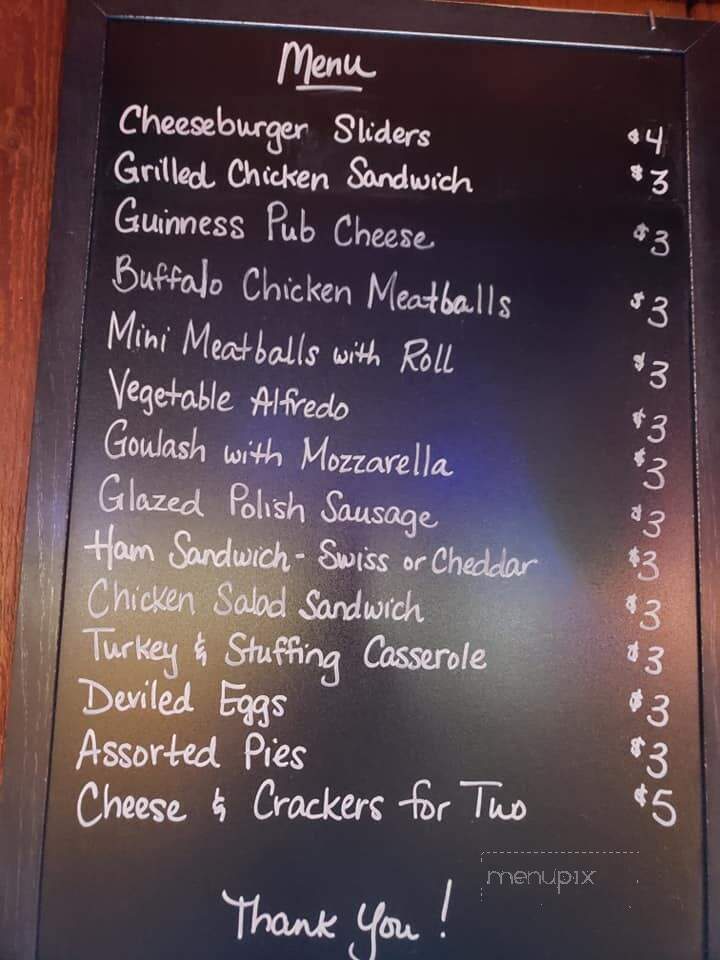 Menu
Cheeseburger Sliders $4
Grilled Chicken Sandwich $3
Guinness Pub Cheese $3
Buffalo Chicken Meatballs $3
Mini Meatballs with Roll $3
Vegetable Alfredo $3
Goulash with Mozzarella $3
Glazed Polish Sausage $3
Ham Sandwich - Swiss or Cheddar $3
Chicken Salad Sandwich $3
Turkey & Stuffing Casserole $3
Deviled Eggs $3
Assorted Pies $3
Cheese & Crackers for Two $5
menupix
Thank You!